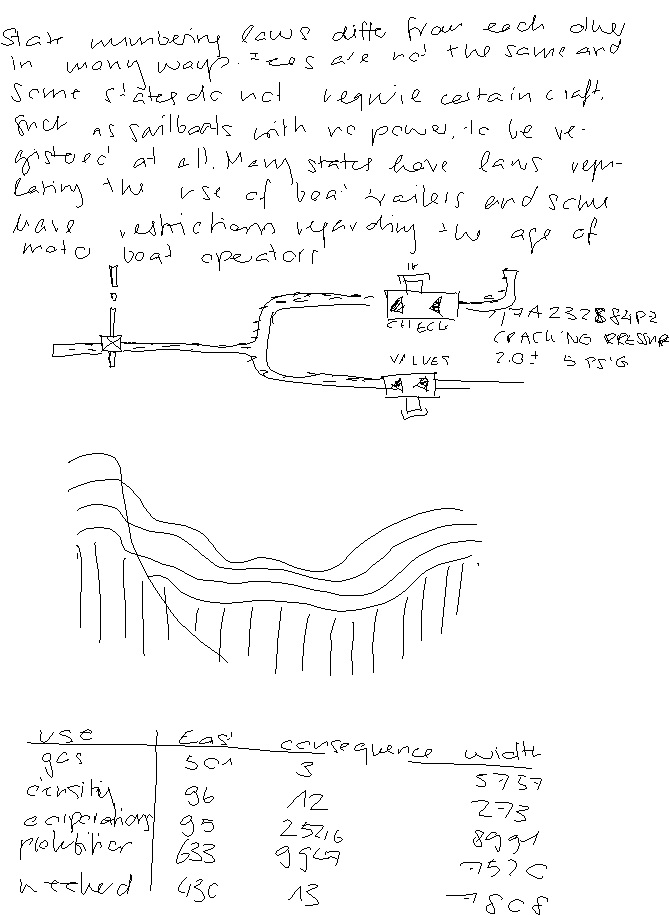 State numbering laws differ from each other
in many ways. Fees are not the same and
some states do not require certain craft,
such as sailboats with no power, to be re-
gistered at all. Many states have laws regu-
lating the use of boat trailers and some
have restrictions regarding the age of
motor boat operators
CHECK
VALVES
CRACKING PRESSURE
2.0 ± 5 PSIG
use East consequence width
gas 501 3 5757
density 96 12 273
95 8991
633 7520
430 13 7808